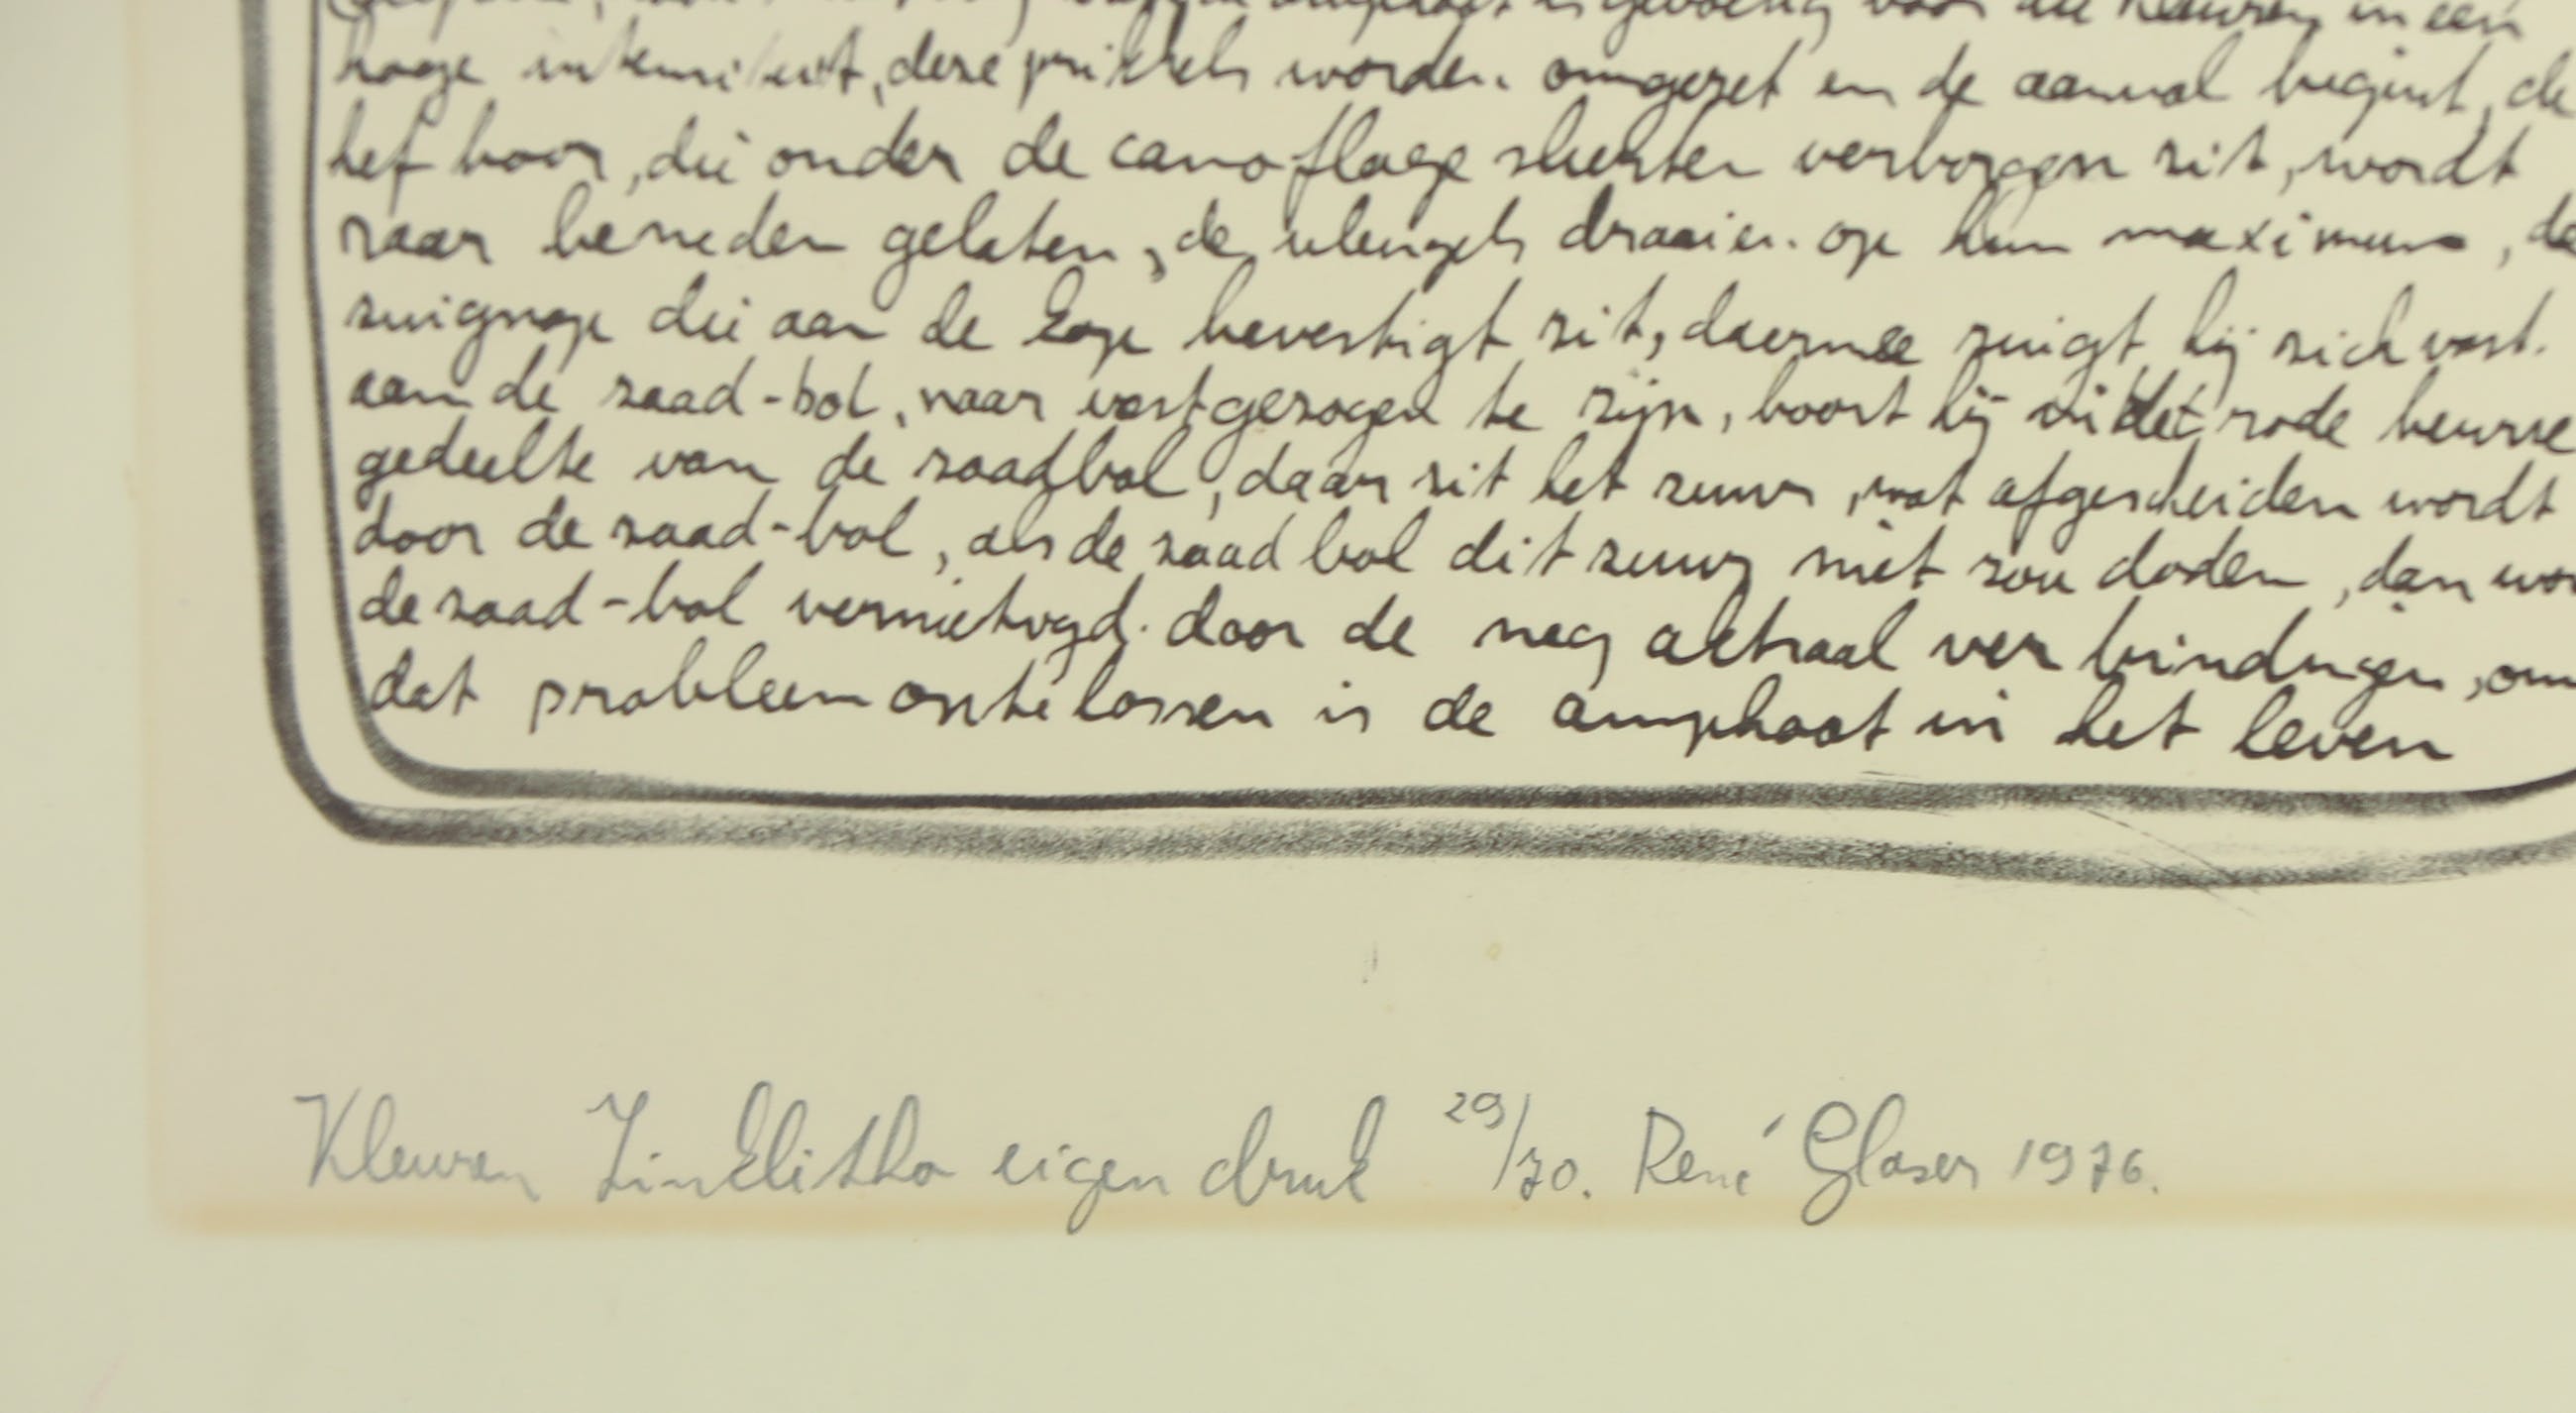 gevoelig voor die kleuren in een
hooge intensiteit, deze prikkels worden omgezet en de aanval begint, de
hef boor, die onder de camoflage slierten verborgen zit, wordt
naar beneden gelaten, de vleugels draaien op hun maximum, de
zuignap die aan de kop bevestigt zit, daarmee zuigt hij zich vast.
aan de zaad-bol, naar vastgezogen te zijn, boort hij in het rode
gedeelte van de zaadbol, daar zit het zuur, wat afgescheiden wordt
door de zaad-bol, als de zaad bol dit zuur niet zou doden, dan wor
de zaad-bol vernietigd. door de neg astraal ver bindingen, om
dat probleem opte lossen is de amphoot in het leven
Kleuren Zinklitho eigen druk 29/70. René Glaser 1976.